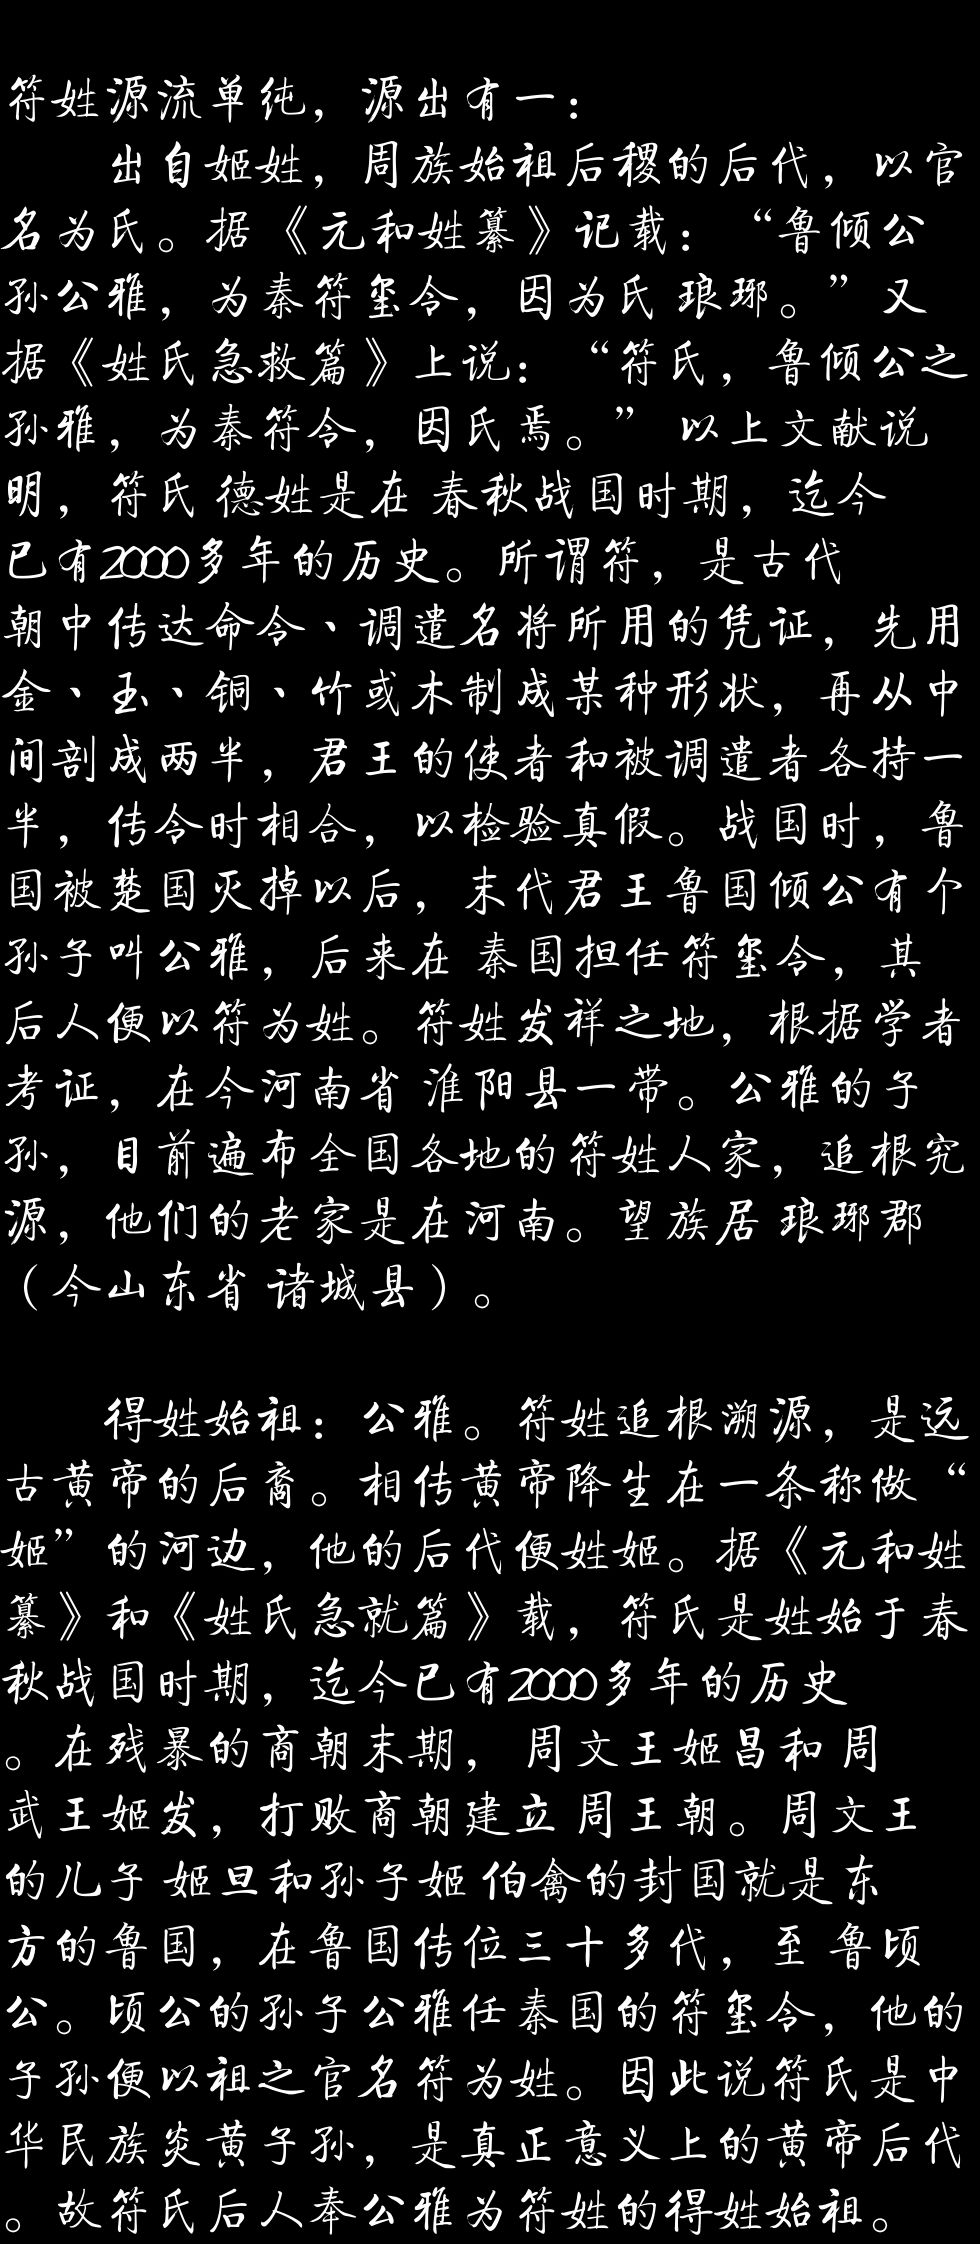 符姓源流单纯，源出有一：
出自姬姓，周族始祖后稷的后代，以官
名为氏。据《元和姓纂》记载：“鲁倾公
孙公雅，为秦符玺令，因为氏 琅琊。”又
据《姓氏急救篇》上说：“符氏，鲁倾公之
孙雅，为秦符令，因氏焉。” 以上文献说
明，符氏 德姓是在 春秋战国时期，迄今
已有2000多年的历史。所谓符，是古代
朝中传达命令、调遣名将所用的凭证，先用
金、玉、铜、竹或木制成某种形状，再从中
间剖成两半，君王的使者和被调遣者各持一
半，传令时相合，以检验真假。战国时，鲁
国被楚国灭掉以后，末代君王鲁国倾公有个
孙子叫公雅，后来在 秦国担任符玺令，其
后人便以符为姓。符姓发祥之地，根据学者
考证，在今河南省 淮阳县一带。公雅的子
孙，目前遍布全国各地的符姓人家，追根究
源，他们的老家是在河南。望族居 琅琊郡
（今山东省 诸城县）。
得姓始祖：公雅。符姓追根溯源，是远
古黄帝的后裔。相传黄帝降生在一条称做“
姬”的河边，他的后代便姓姬。据《元和姓
纂》和《姓氏急就篇》载，符氏是姓始于春
秋战国时期，迄今已有2000多年的历史
。在残暴的商朝末期， 周文王姬昌和 周
武王姬发，打败商朝建立 周王朝。周文王
的儿子 姬旦和孙子姬 伯禽的封国就是东
方的鲁国，在鲁国传位三十多代，至 鲁顷
公。顷公的孙子公雅任秦国的符玺令，他的
子孙便以祖之官名符为姓。因此说符氏是中
华民族炎黄子孙，是真正意义上的黄帝后代
。故符氏后人奉公雅为符姓的得姓始祖。